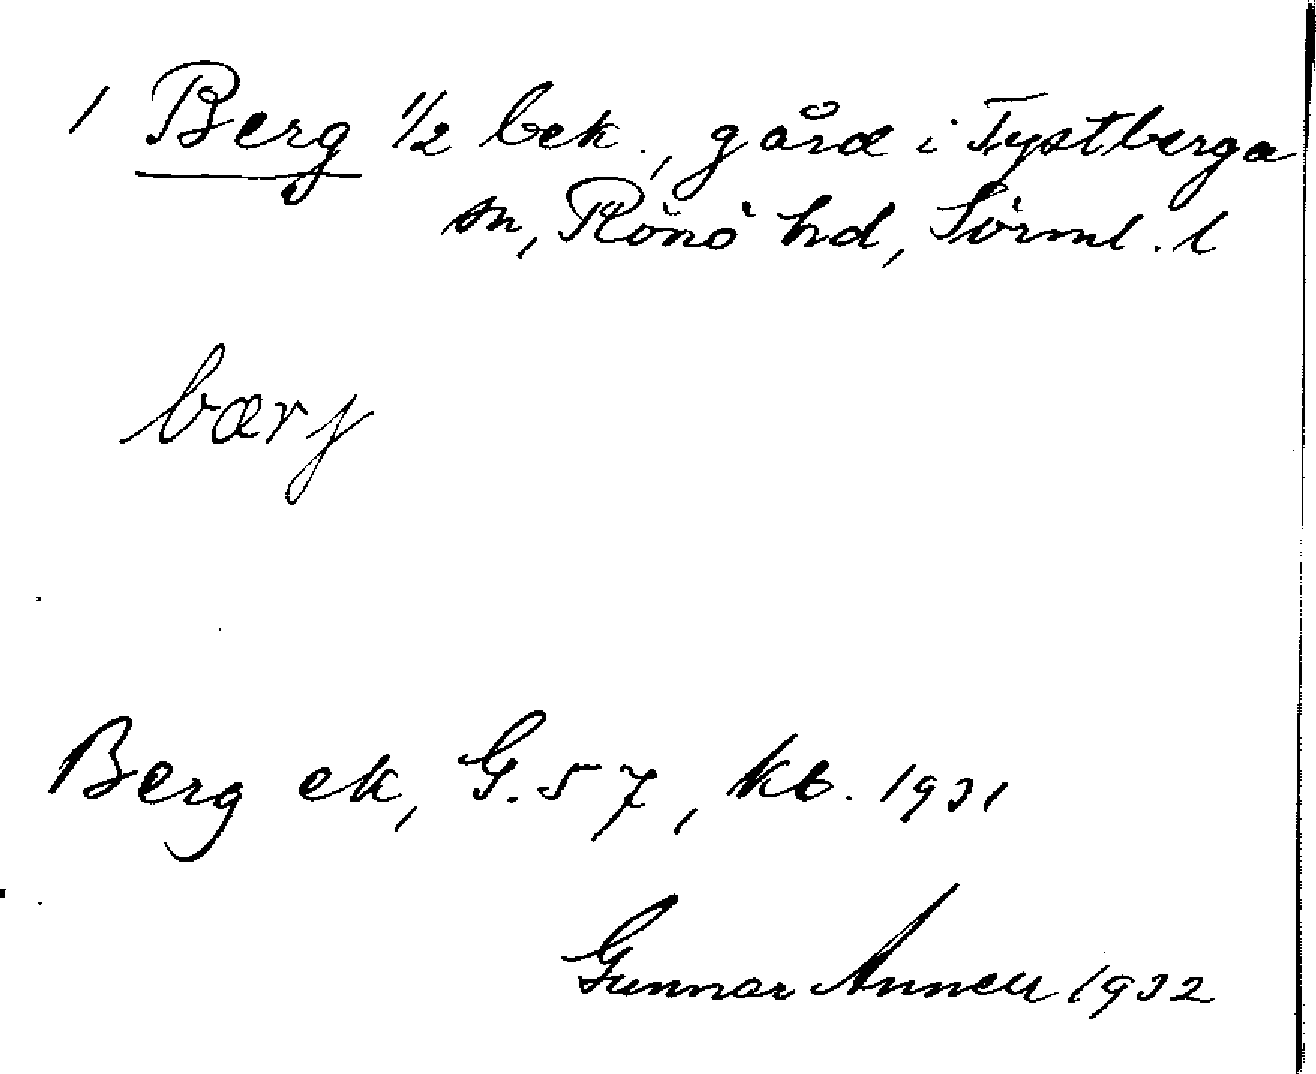 1 Berg 1/2 bek., gård i Tystberga
sn, Rönö hd, Sörml. l
bærj
Berg ek, G. 57, kb. 1931
Gunnar Annell 1932